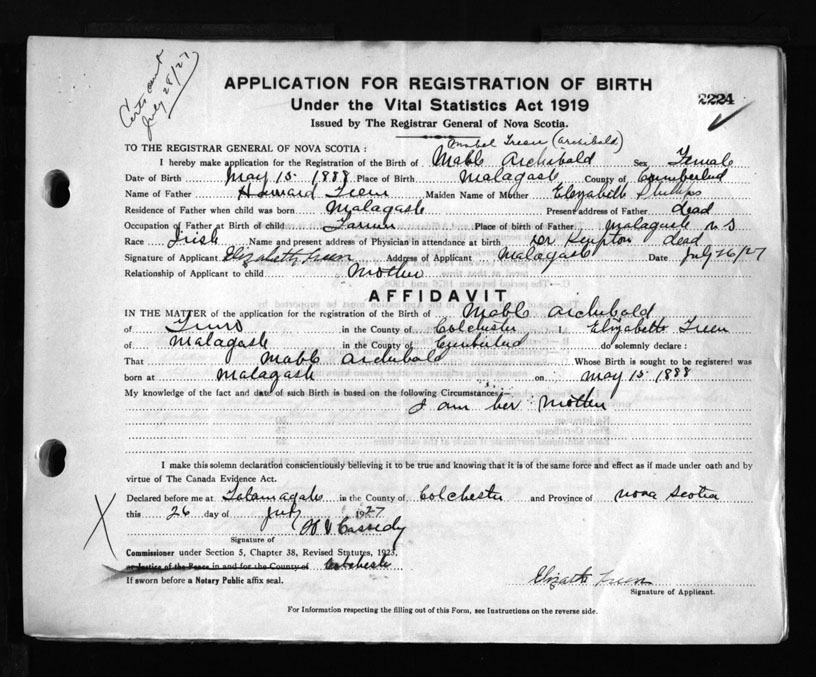 Certs sent
July 28/27
APPLICATION FOR REGISTRATION OF BIRTH
2224
Under the Vital Statistics Act 1919
Issued by The Registrar General of Nova Scotia.
Mabel Treen (Archibald)
TO THE REGISTRAR GENERAL OF NOVA SCOTIA :
I hereby make application for the Registration of the Birth of Mable Archibald Sex Female
Date of Birth May 15. 1888 Place of Birth Malagash County of Cumberland
Name of Father Howard Treen Maiden Name of Mother Elizabeth Phillips
Residence of Father when child was born Malagash Present address of Father dead
Occupation of Father at Birth of child Farmer Place of birth of Father Malagash N S
Race Irish Name and present address of Physician in attendance at birth Dr Kempton dead
Signature of Applicant Elizabeth Treen Address of Applicant Malagash Date July 26/27
Relationship of Applicant to child Mother
AFFIDAVIT
IN THE MATTER of the application for the registration of Birth of Mable Archibald
of Truro in the County of Colchester I, Elizabeth Treen
of Malagash in the County of Cumberland do solemnly declare :
That Mable Archibald Whose Birth is sought to be registered was
born at Malagash on May 15. 1888
My knowledge of the fact and date of such Birth is based on the following Circumstances :—
I am her Mother
I make this solemn declaration conscientiously believing it to be true and knowing that it is of the same force and effect as if made under oath and by
virtue of The Canada Evidence Act.
Declared before me at Tatamagouche in the County of Colchester and Province of Nova Scotia
this 26 day of July 1927
Cassidy
Signature of
Commissioner under Section 5, Chapter 38, Revised Statutes, 1923.
or Justice of the Peace in and for the County of Colchester
If sworn before a Notary Public affix seal.
Elizabeth Treen
Signature of Applicant.
For Information respecting the filling out of this Form, see Instructions on the reverse side.